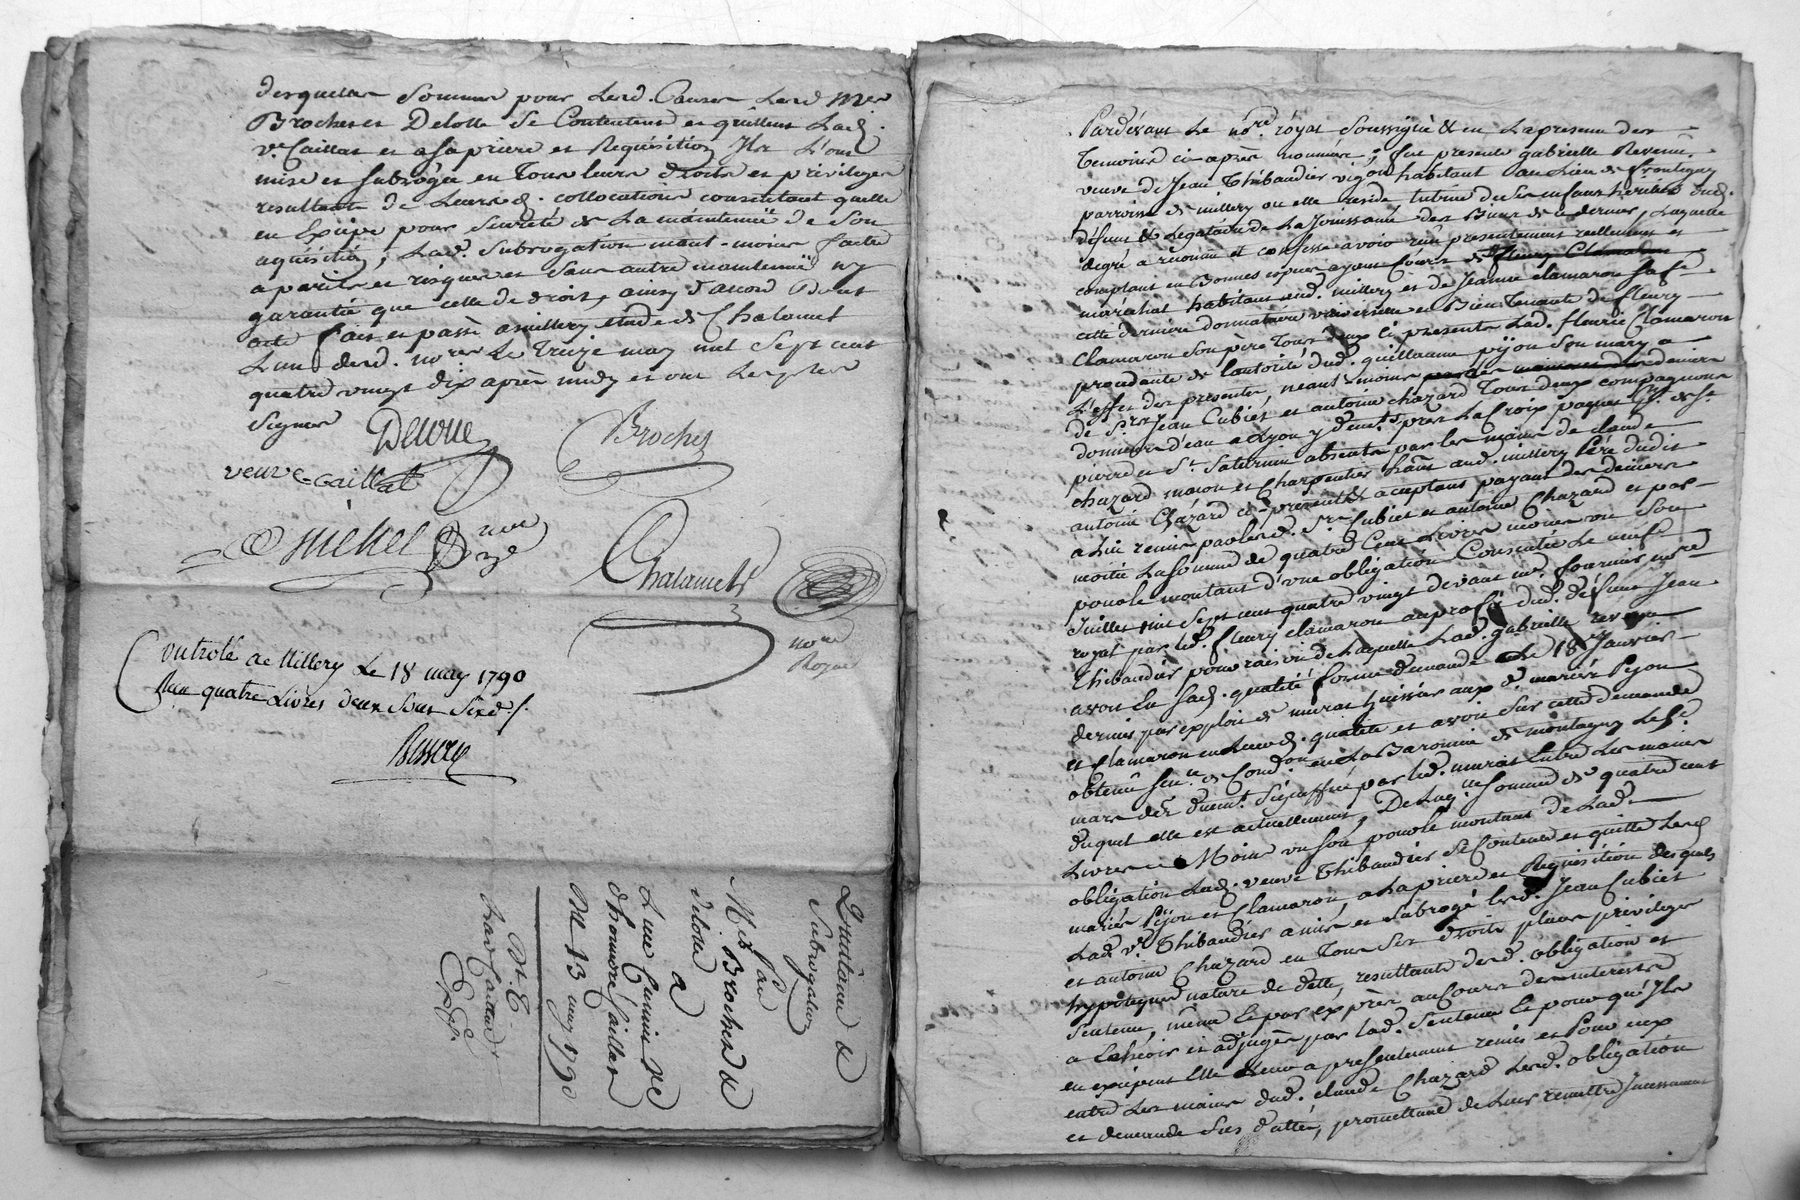 desquelles sommes pour lesd. causes lesd. Mes
Brochet et Delolle se contentent et quittent lad.
ve. Caillat et a sa priere et Requisition Ils l'ont
mise et subrogée en tous leurs droits et privileges
resultant de leursd. collocation consentant quelle
en Excipe pour sureté & la maintenüe de son
aquisition, lad. subrogation neant-moins faitte
a perils et risques et sans autre maintenüe ny
garantie que celle de droit, ainsy d'accord Dont
acte fait et passé a millery etude de Chalamel
l'un desd. nores. le treize may mil sept cent
quatre vingt dix après midy et ont les parties
Signés
Brochet
veuve Caillat
Michel
nore
Chalamel
nore
Royal
Controlé a Millery Le 18 may 1790
Reçu quatre Livres deux sous six d.
Quittance &
Subrogation
Par
Mes. Brochet &
delolle
a
d'honnoré Caillat
Du 13 may 1790
Pardevant le nore. royal soussigné & en la presence des
temoins ci-après nommés; fut presente gabrielle Revenu,
veuve de Jean Thibaudier vigon habitant au lieu de frontigny
parroisse de millery ou elle reside tutrice de ses enfants héritiers dud.
défunt & legataire de la Jouissance des Biens de ce dernier, Laquelle
degré a reconnu et confessé avoir reçu presentement reellement et
comptant en Bonnes especes ayant cours de fleury Clamaron
maréchal habitant aud. millery et de Jeanne clamaron sa fe.
cette derniere donnataire universelle et Bien tenante de fleury
Clamaron son père tous deux ci presents Lad. fleurie Clamaron
procedante de l'autorité dud. guillaume pijon son mary a
L'effet des presentes, neant-moins par les mains et des deniers
de Srs. Jean Cubiet et antoine chazard tous deux compagnons
donneurs d'eau a Lyon y demts. près La Croix paquet St. de St.
pierre et St. Saturnin absents par les mains de claude
chazard macon et charpentier habt. aud. millery Père dudit
antoine Chazard ci-present & acceptant payant des deniers
a lui remis par lesd. Srs. Cubiet et antoine Chazard et par
moitié La somme de quatre Cent livres moins un sou
pour le montant d'une obligation consentie le neuf
Juillet mil sept cent quatre vingt devant me. fournier nore.
royal par led. fleury clamaron au profit dud. défunt Jean
Thibaudier pour raison de laquelle Lad. gabrielle revenu
avoit En sad. qualité formé demande Le 18 Janvier
dernier par exploit de murat huissier aux d. mariés Pijon
et Clamaron en leursd. qualités et avoit sur cette demande
obtenu sence. de condon. en La Baronnie de montagny le 5e.
mars der. duemt. signiffié par led. murat Entre les mains
duquel elle est actuellement, De laq.lle somme de quatre cent
Livres Moins un sou pour le montant de Lad.
obligation Lad. veuve Thibaudier se contente et quitte lesd.
mariés Pijon et Clamaron, a la priere et Requisition desquels
Lad. ve. Thibaudier a mis et subrogé lesd. Jean Cubiet
et antoine Chazard en tous ses droits places privileges
hypoteques nature de dette, resultants desd. obligation et
sentence, même Et par exprès au cours des interests
a Echeoir et adjugés par lad. sentence Et pour qu'Ils
en excipent elle a presentement remis et Pour eux
entre les mains dud. claude Chazard Lesd. obligation
et demande sus datée, promettant de leur remettre Incessament